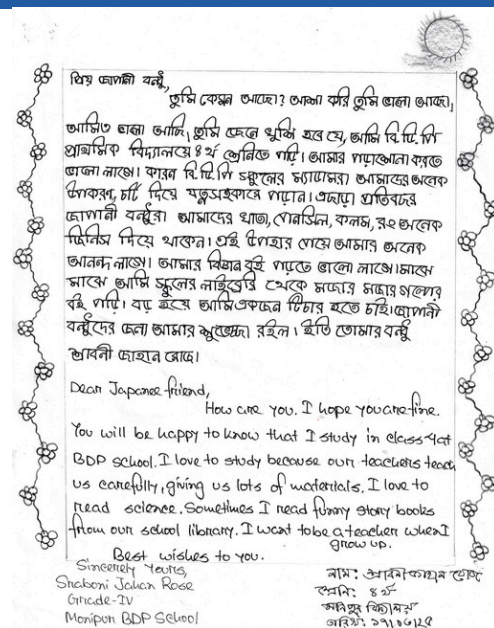 প্রিয় জাপানী বন্ধু,
তুমি কেমন আছো? আশা করি তুমি ভালো আছো,
আমিও ভালো আছি, তুমি জেনে খুশি হবে যে, আমি বি.ডি.পি
প্রাথমিক বিদ্যালয়ে ৪র্থ শ্রেনিতে পড়ি। আমার পড়াশোনা করতে
ভালো লাগে। কারন বি.ডি.পি স্কুলের ম্যাডামরা আমাদের অনেক
উপকরন, চার্ট দিয়ে যত্নসহকারে পড়ান। এছাড়া প্রতিবছর
জাপানী বন্ধুরা আমাদের খাতা, পেনসিল, কলম, রং অনেক
জিনিস দিয়ে থাকেন। এই উপহার পেয়ে আমার অনেক
আনন্দ লাগে। আমার বিজ্ঞান বই পড়তে ভালো লাগে। মাঝে
মাঝে আমি স্কুলের লাইব্রেরি থেকে মজার মজার গল্পের
বই পড়ি। বড় হয়ে আমি একজন টিচার হতে চাই। জাপানী
বন্ধুদের জন্য আমার শুভেচ্ছা রইল। ইতি তোমার বন্ধু
শ্রাবনী জাহান রোজ।
Dear Japanee friend,
How are you. I hope you are fine.
You will be happy to know that I study in class 4 at
BDP School. I love to study because our teachers teach
us carefully, giving us lots of materials. I love to
read science. Sometimes I read funny story books
from our school library. I want to be a teacher when I
grow up.
Best wishes to you.
Sincerely Yours,
Sraboni Jahan Rose
Grade-IV
Monipur BDP School
নাম: শ্রাবনী জাহান রোজ
শ্রেনি: ৪র্থ
মনিপুর বিদ্যালয়
তারিখ: